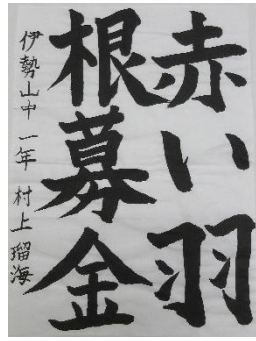 赤い羽
根募金
伊勢山中 一年 村上 瑠海